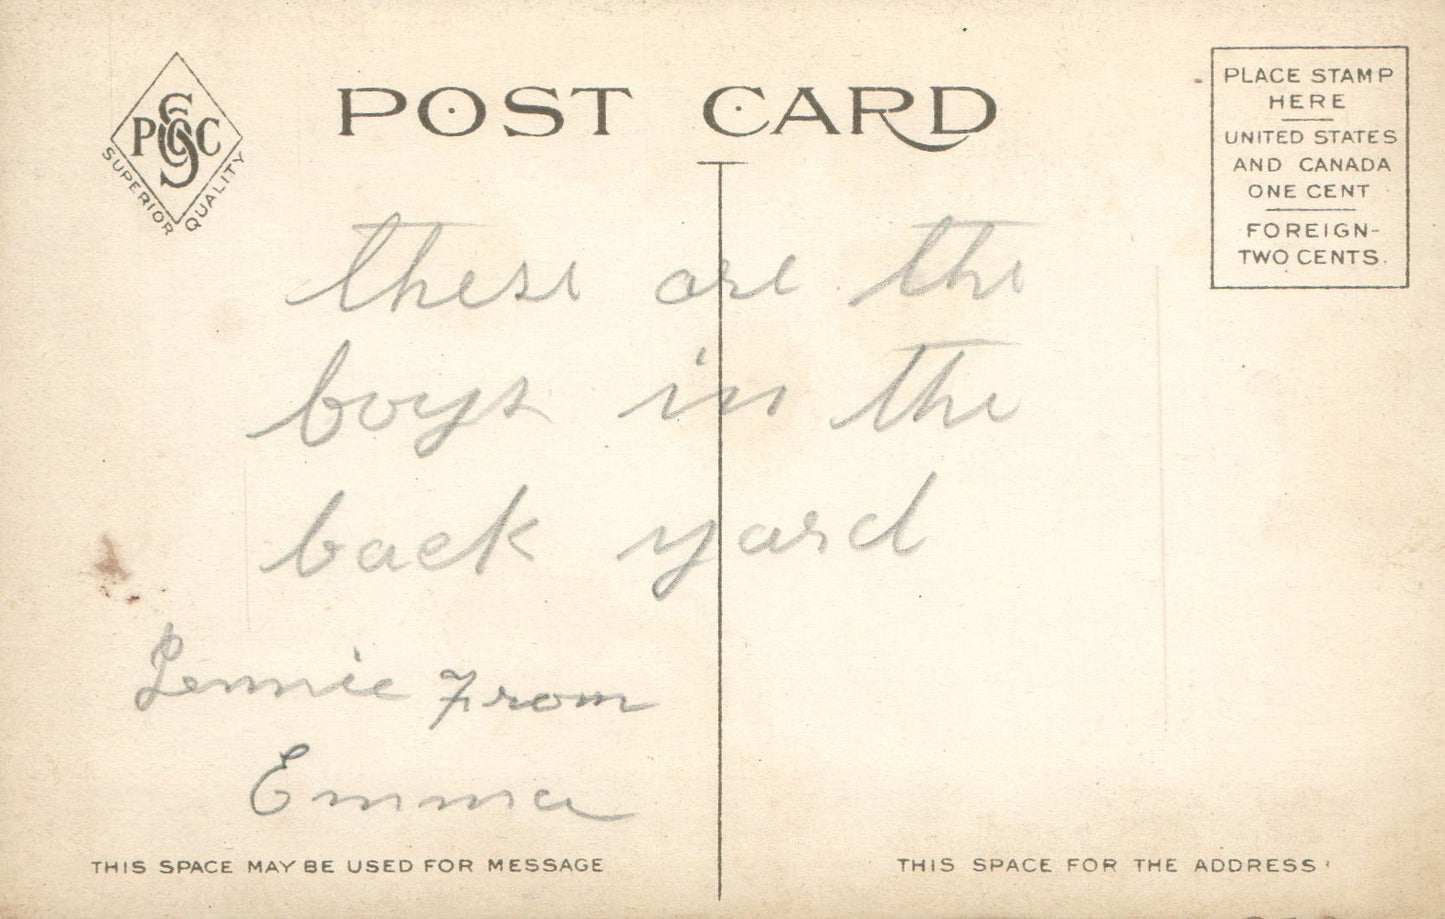 POST CARD
PSC
SUPERIOR QUALITY
PLACE STAMP
HERE
UNITED STATES
AND CANADA
ONE CENT
FOREIGN-
TWO CENTS.
these are the
boys in the
back yard
Lennie From
Emma
THIS SPACE MAY BE USED FOR MESSAGE
THIS SPACE FOR THE ADDRESS